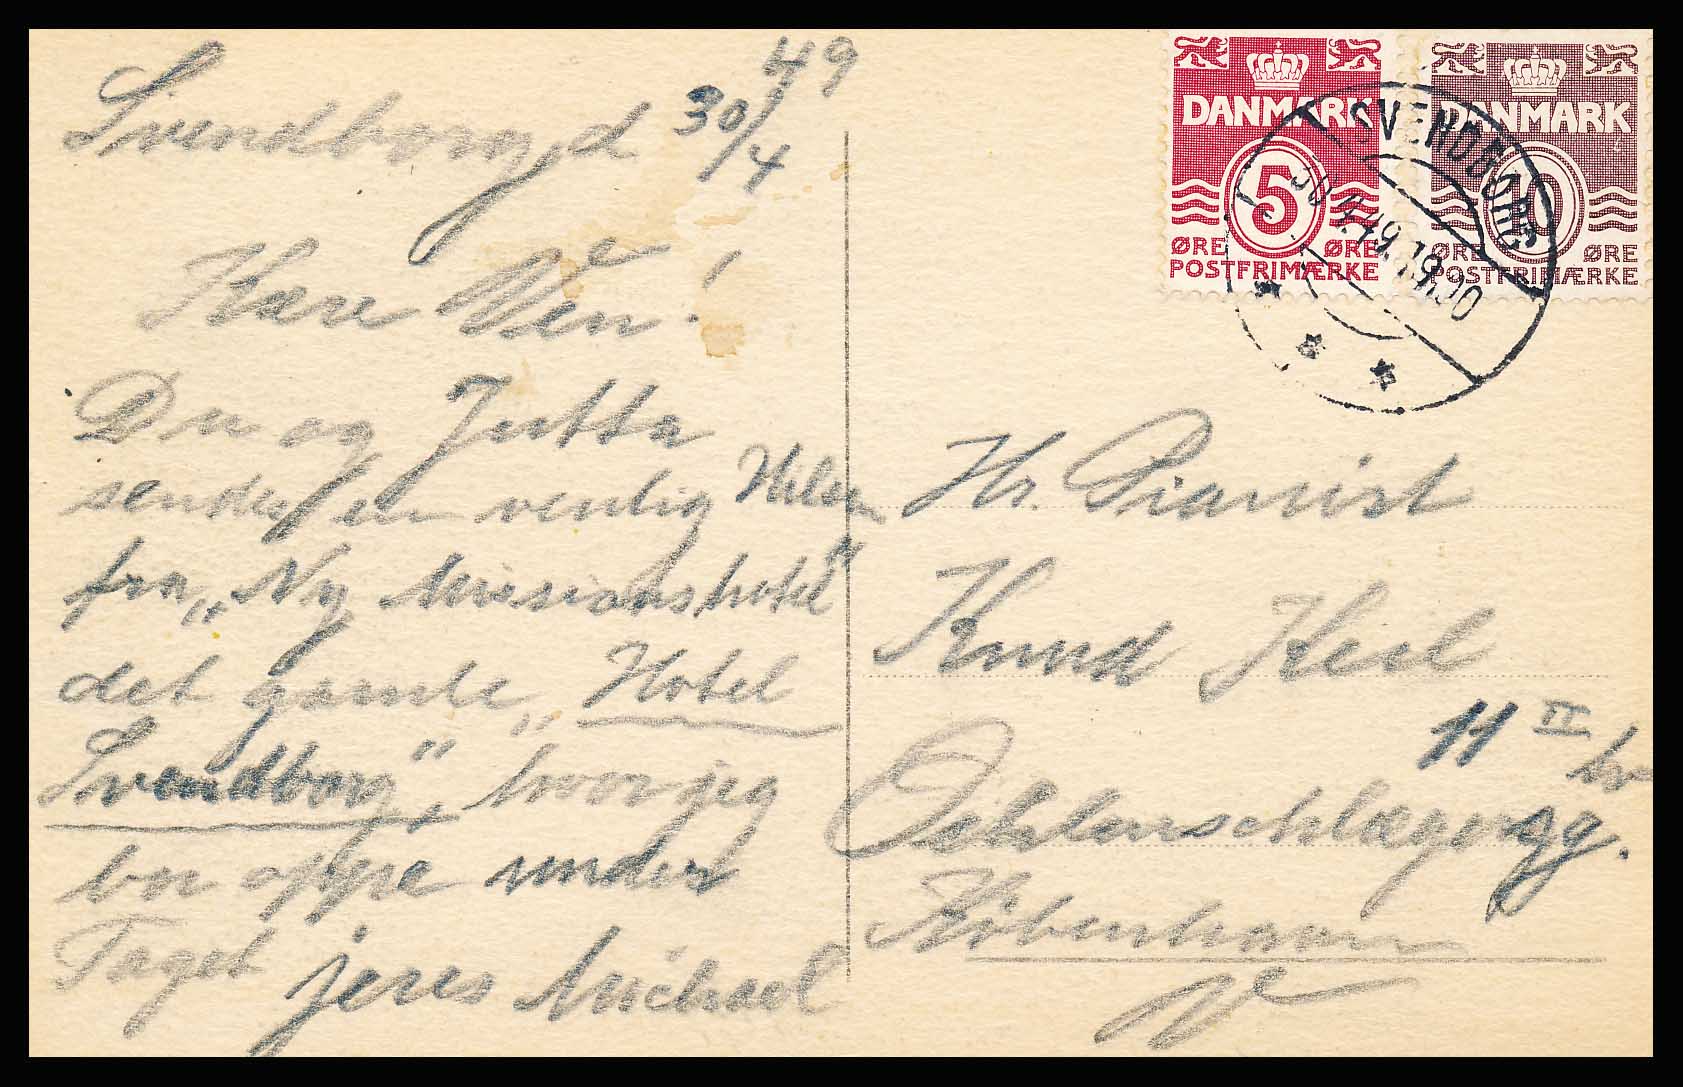 Svendborg, d 30/4 49
Kære Ven!
Du og Jutta
sendes en venlig Hilsen
fra „Ny Missionshotel"
det gamle „Hotel
Svendborg", hvor jeg
bor oppe under
Taget
jeres Michael
DANMARK
5
ØRE ØRE
POSTFRIMÆRKE
DANMARK
10
ØRE ØRE
POSTFRIMÆRKE
SVENDBORG
30.4.49.19.00
Hr. Pianist
Knud
11 II
Oehlenschlægersg.
København
V